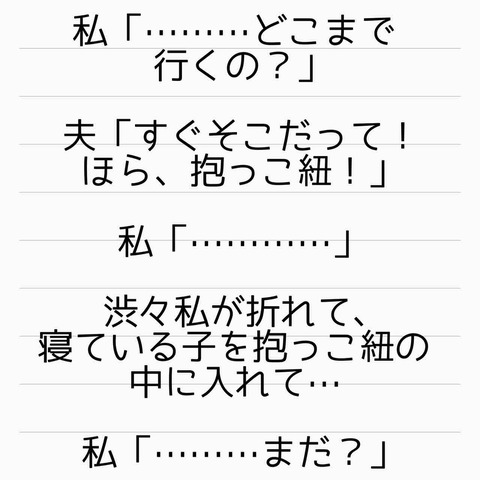 私「………どこまで
行くの？」
夫「すぐそこだって！
ほら、抱っこ紐！」
私「…………」
渋々私が折れて、
寝ている子を抱っこ紐の
中に入れて…
私「………まだ？」